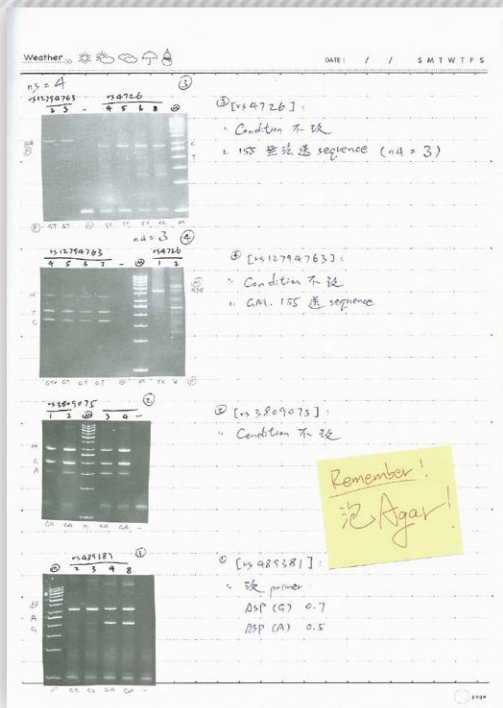 Weather
DATE: / / S M T W T F S
n3 = 4 ③
rs12794763 rs4726
2 3 - 4 5 6 8 Ⓜ
GT GT CC CC CC CC M
③ [rs4726] :
Condition 不改
155 無法送 sequence (n4 = 3)
n4 = 3 ④
rs12794763 rs4726
4 5 6 7 - Ⓜ 1 2
GT GT GT GT
④ [rs12794763] :
Condition 不改
GM. 155 送 sequence
②
rs3809075
1 2 Ⓜ 3 4 -
M
C
A
CA CA CA CA -
② [rs3809075] :
Condition 不改
Remember!
泡 Agar!
①
rs489381
Ⓜ 2 3 4 8
A
G
GA GA -
① [rs489381] :
改 primer
ASP (G) 0.7
ASP (A) 0.5
page